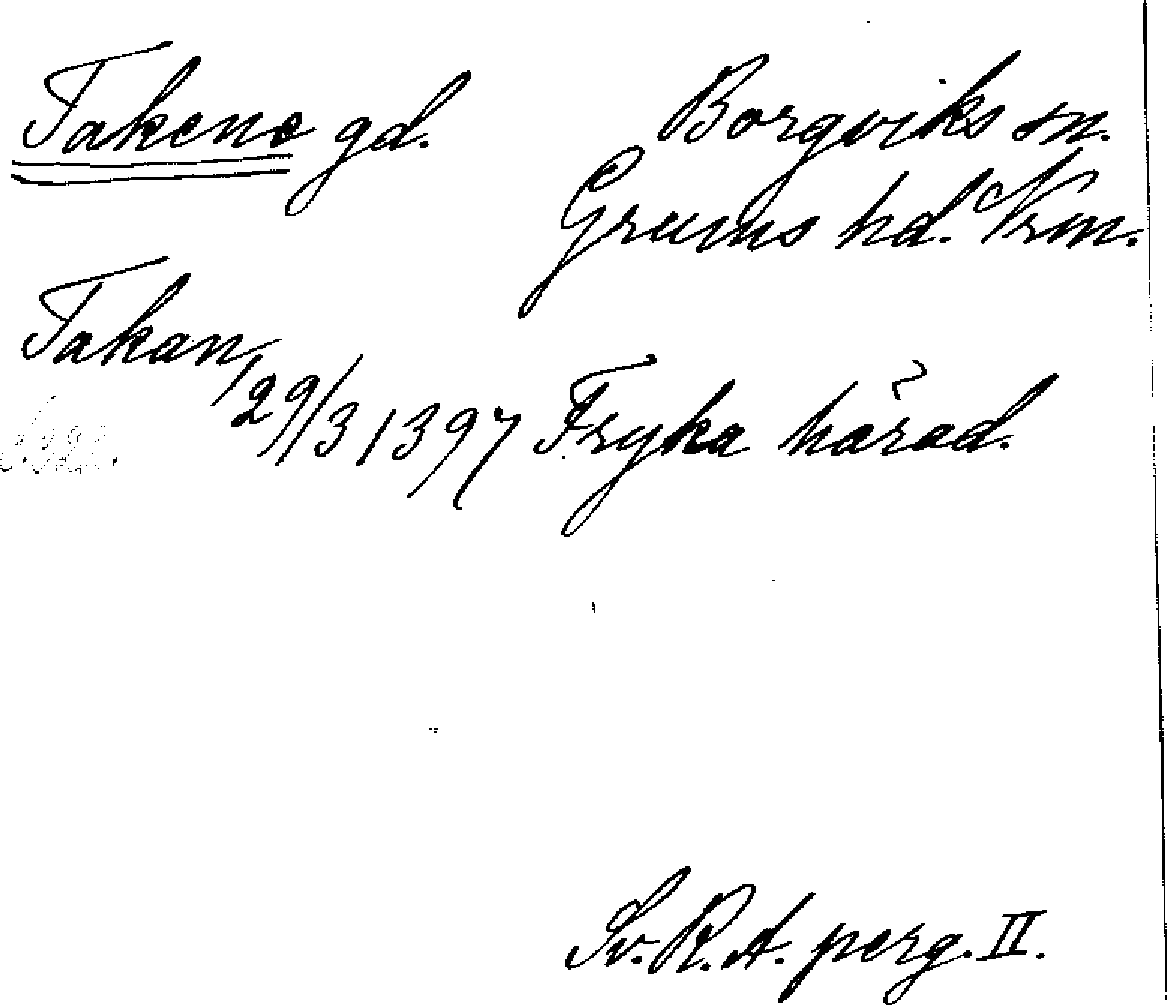 Takene gd. Borgviks sn.
Grums hd. Vrm.
Takan, 29/3 1397 Fryka härad.
Sv. R. A. perg. II.